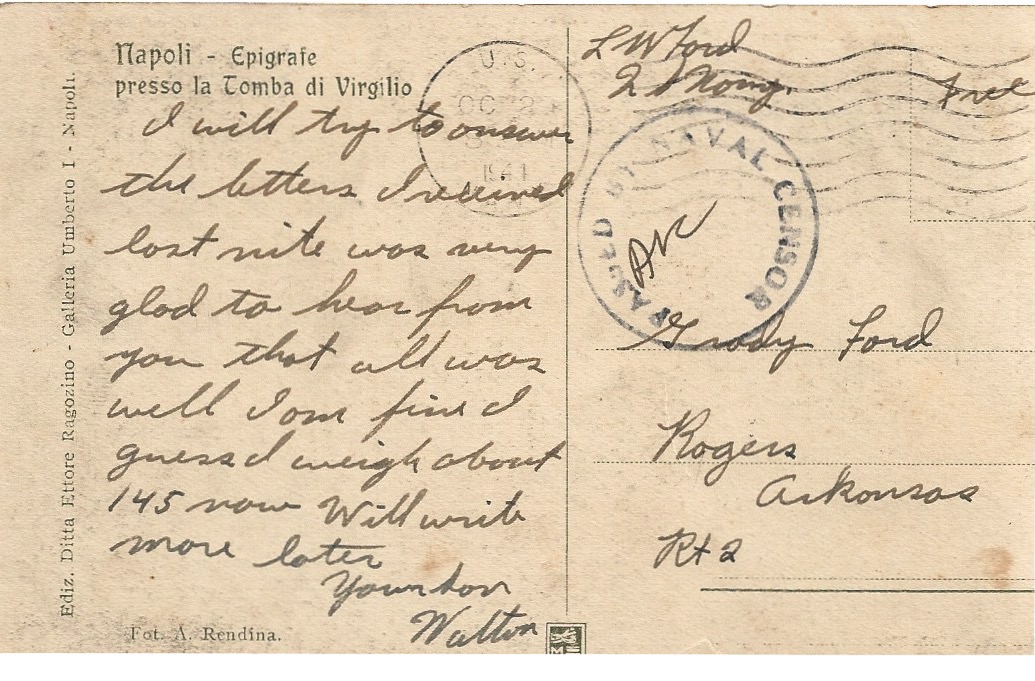 Napoli - Epigrafe
presso la Tomba di Virgilio
I will try to answer
the letters I received
last nite was very
glad to hear from
you that all was
well I am fine I
guess I weigh about
145 now Will write
more later
Your son
Walton
Fot. A. Rendina.
Ediz. Ditta Ettore Ragozino - Galleria Umberto I - Napoli.
U.S.
OC 2
194
L W Ford
Free
PASSED BY NAVAL CENSOR
Grady Ford
Rogers
Arkansas
Rt 2